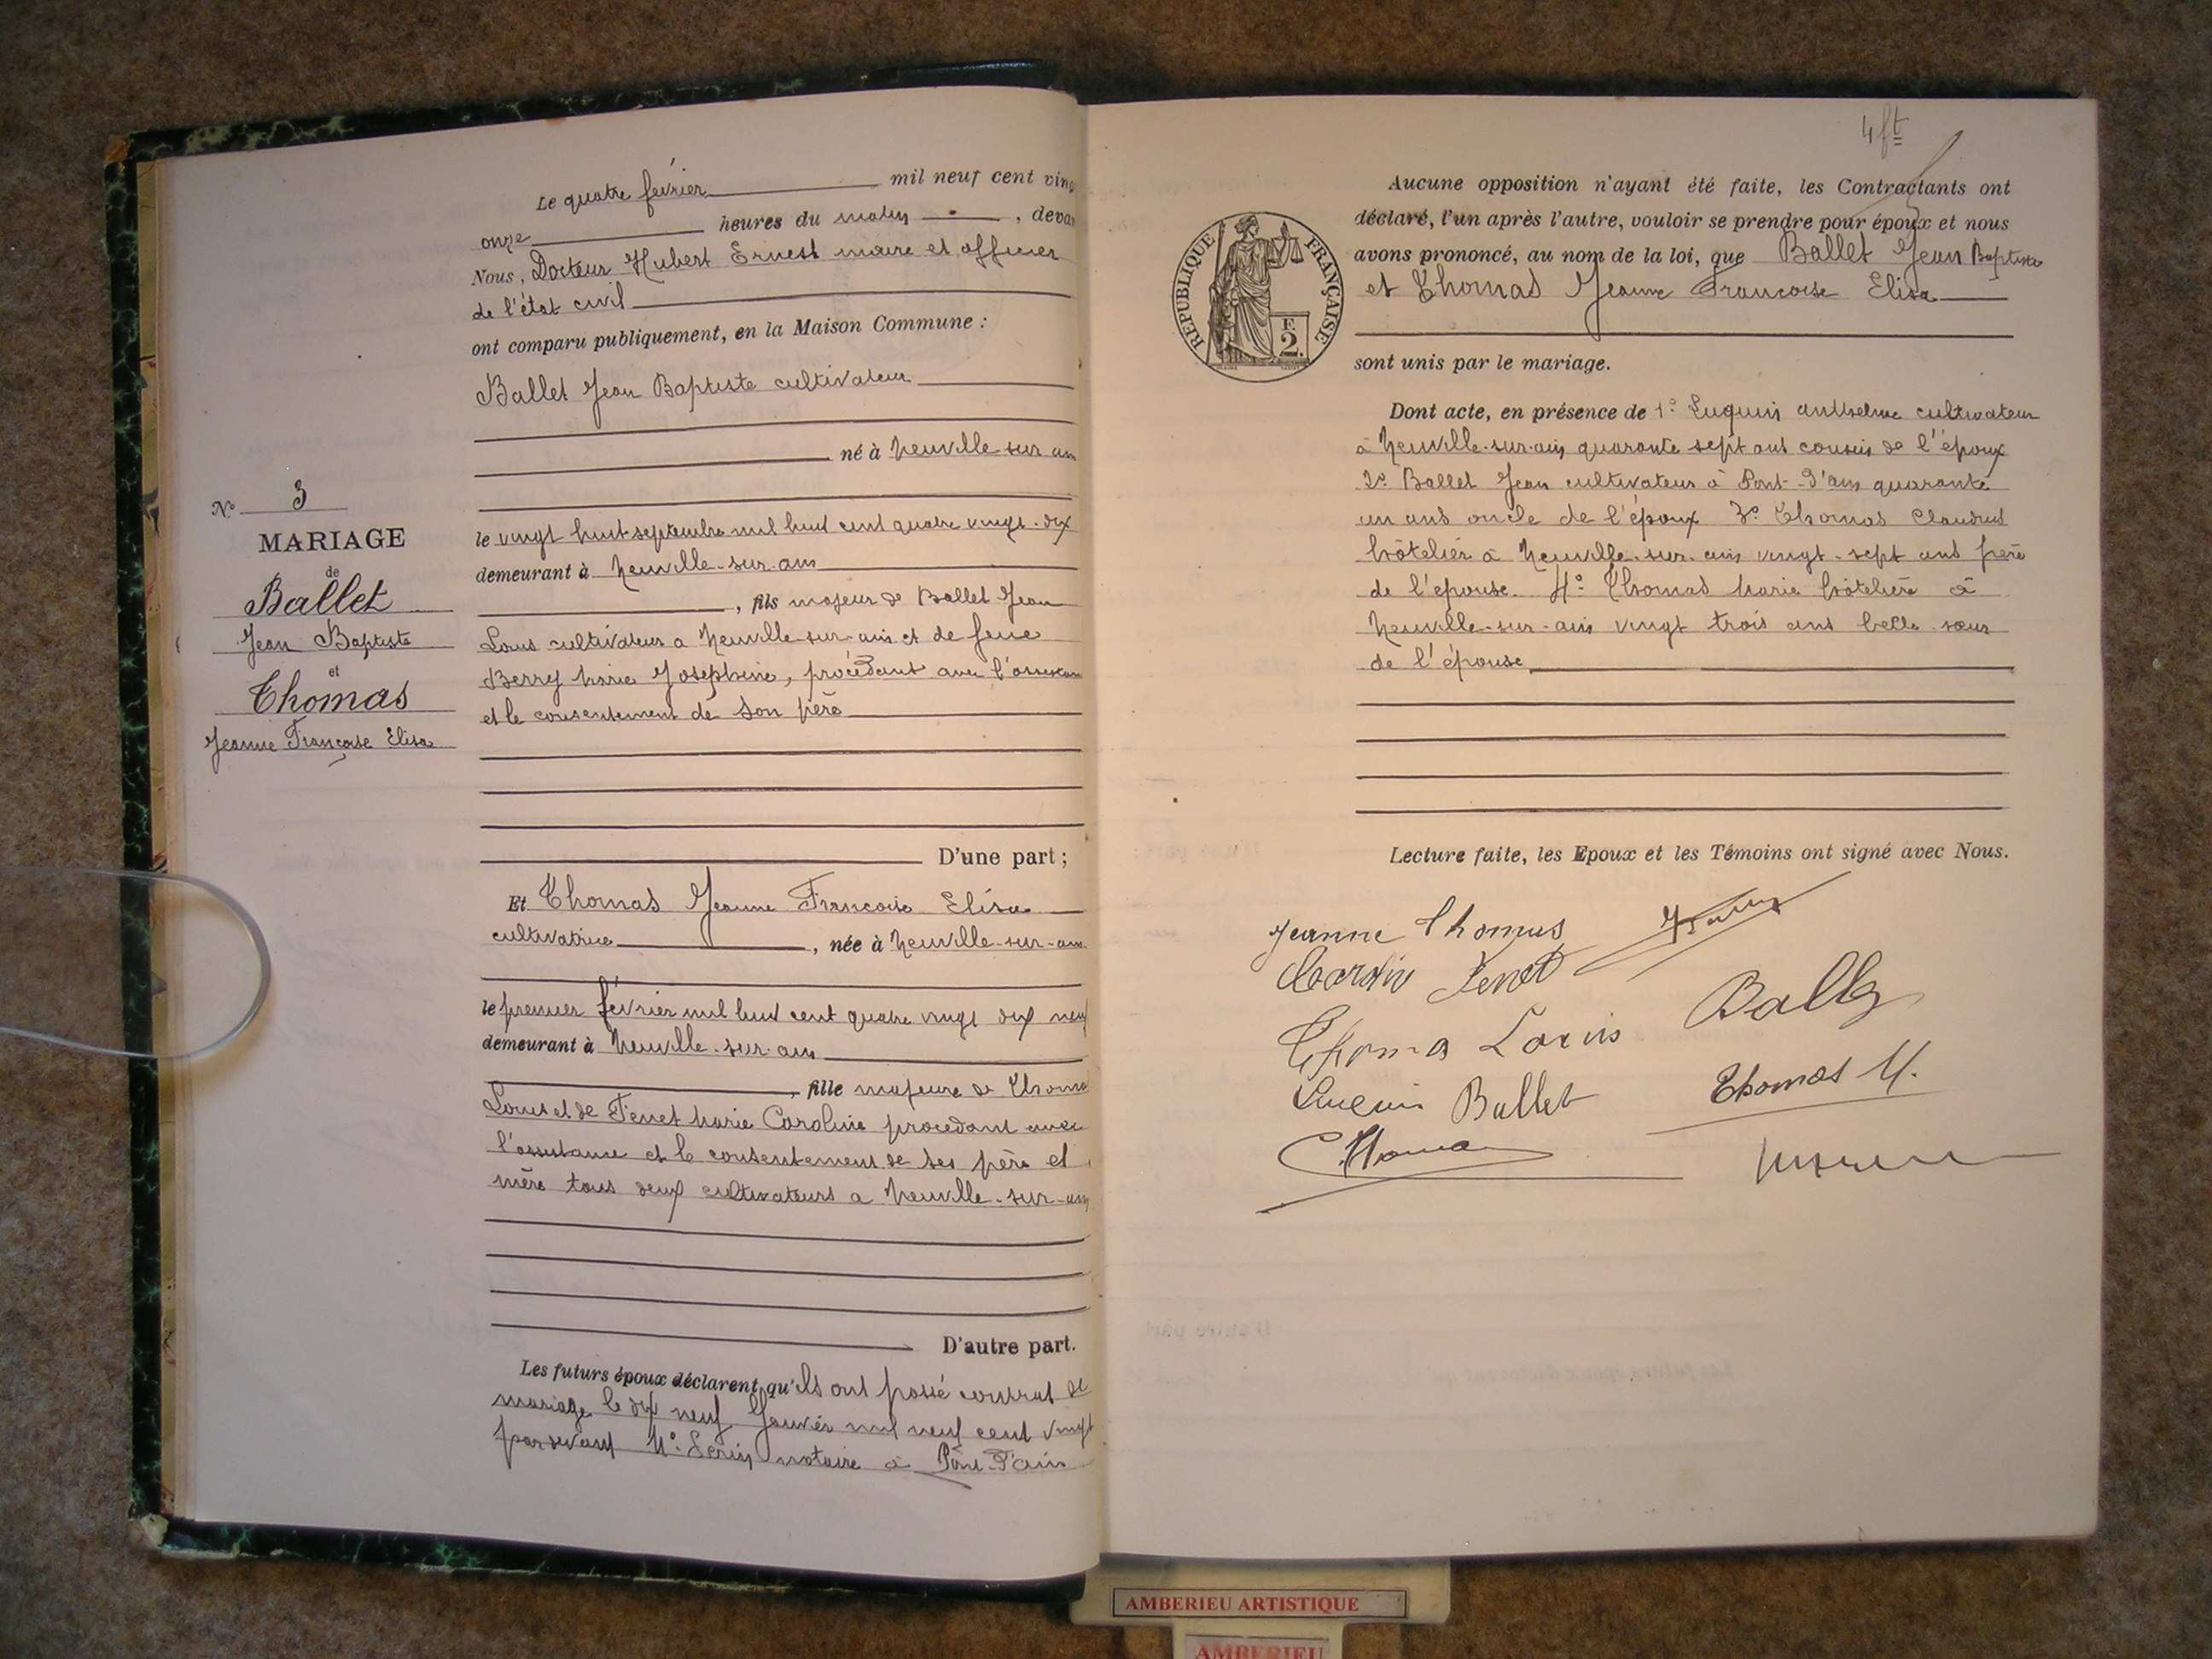 Le quatre février mil neuf cent ving
onze heures du matin, deva
Nous, Docteur Hubert Ernest maire et officier
de l'état civil
ont comparu publiquement, en la Maison Commune :
Ballet Jean Baptiste cultivateur
né à Neuville-sur-ain
le vingt huit septembre mil huit cent quatre vingt-dix
demeurant à Neuville-sur-ain
, fils majeur de Ballet Jean
Louis cultivateur a Neuville-sur-ain et de feue
Berry Marie Joséphine, procédant avec l'assistan
et le consentement de son père
D'une part ;
Et Thomas Jeanne Francoise Elisa
cultivatrice, née à Neuville-sur-ain
le premier février mil huit cent quatre vingt dix neuf
demeurant à Neuville-sur-ain
, fille majeure de Thoma
Louis et de Tenet Marie Caroline procedant avec
l'assistance et le consentement de ses père et
mère tous deux cultivateurs a Neuville-sur-ain
D'autre part.
Les futurs époux déclarent qu'ils ont passé contrat de
mariage le dix neuf Janvier mil neuf cent vingt
par devant Me notaire à Pont-d'ain
N° 3
MARIAGE
de
Ballet
Jean Baptiste
et
Thomas
Jeanne Françoise Elisa
4 ft
Aucune opposition n'ayant été faite, les Contractants ont
déclaré, l'un après l'autre, vouloir se prendre pour époux et nous
avons prononcé, au nom de la loi, que Ballet Jean Baptiste
et Thomas Jeanne Francoise Elisa
sont unis par le mariage.
RÉPUBLIQUE FRANÇAISE
F.
2.
Dont acte, en présence de 1° Luquin anthelme cultivateur
à Neuville-sur-ain quarante sept ans cousin de l'époux
2° Ballet Jean cultivateur à Pont-d'ain quarante
un ans oncle de l'époux 3° Thomas Claudius
hôtelier à Neuville-sur-ain vingt-sept ans frère
de l'épouse. 4° Thomas Marie hôtelière à
Neuville-sur-ain vingt trois ans belle sœur
de l'épouse
Lecture faite, les Epoux et les Témoins ont signé avec Nous.
Jeanne Thomas
Tenet
Thoma Louis
Ballet
Thomas M.
AMBERIEU ARTISTIQUE
AMBERIEU